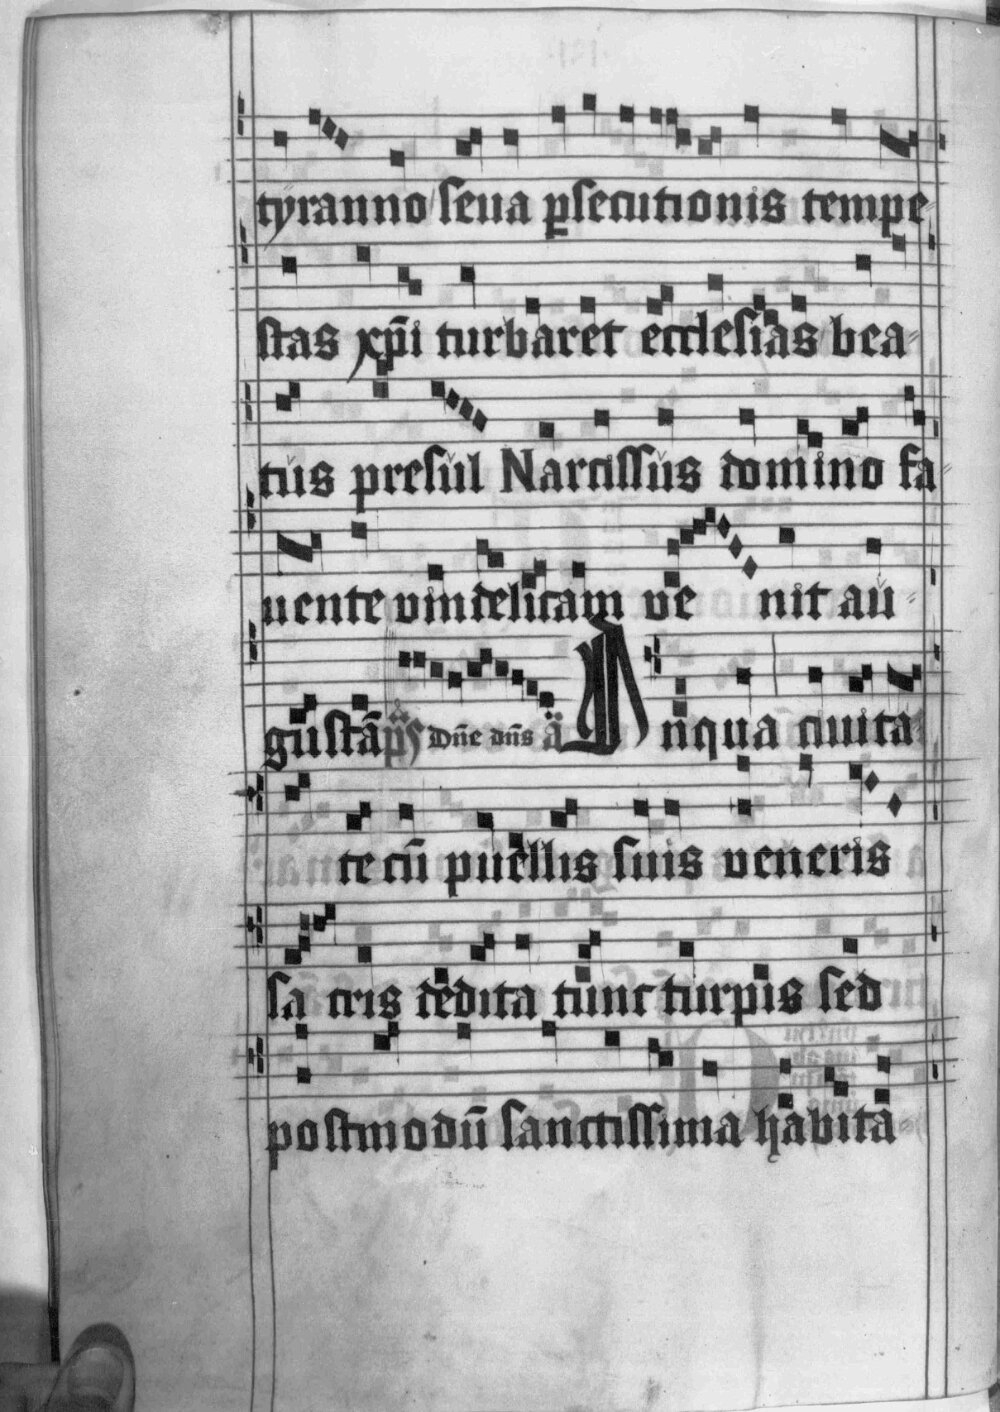 tyranno seua psecutionis tempe
stas xp̄i turbaret ecclesias bea-
tus presul Narcissus domino fa-
uente vindelicam ve nit au-
gustā ps Dn̄e dn̄s ā In qua ciuita-
te cū puellis suis veneris
sa cris dedita tunc turpis sed
postmodū sanctissima habita